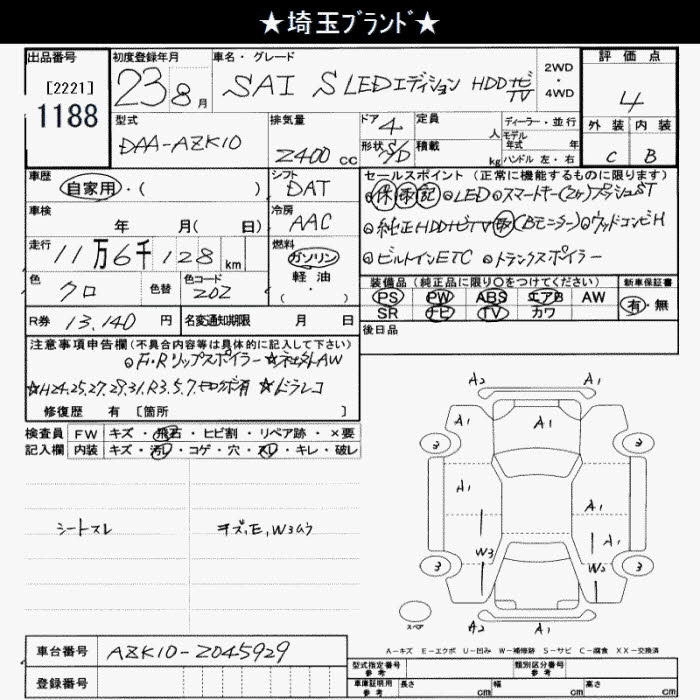 ★埼玉ブランド★
出品番号 初度登録年月 車名・グレード 評価点
[2221] 23 8月 SAI S LEDエディション HDDナビTV 2WD・4WD 4
1188
型式 排気量 ドア 4 定員 人 ディーラー・並行 外装 内装
DAA-AZK10 2400 cc 形状 S/D 積載 kg モデル年式 年 ハンドル 左・右 C B
車歴 シフト セールスポイント (正常に機能するものに限ります)
自家用・( ) DAT 保 取 記 LED スマートキー(2ケ)プッシュST
車検 冷房
年 月( 日) AAC 純正HDDナビTV 取 (Bモニター) ウッドコンビH
走行 燃料
11万6千128 km ガソリン 軽油 ・( ) ビルトインETC トランクスポイラー
色 クロ 色替 色コード 202 装備品 (純正品に限り○をつけてください) 新車保証書
PS PW ABS エアB AW 有・無
SR ナビ TV カワ
R券 13,140 円 名変通知期限 月 日 後日品
注意事項申告欄(不具合内容等は具体的に記入して下さい)
F・Rリップスポイラー ☆社外AW
☆H24.25.27.29.31.R3.5.7.キロク有 ☆ドラレコ
修復歴 有 [箇所 ]
検査員 FW キズ・飛石・ヒビ割・リペア跡・×要
記入欄 内装 キズ・汚レ・コゲ・穴・スレ・キレ・破レ
シートスレ
キズ,E,W3ムラ
A2 A1
A1 A1 A1
3 3
A1 A1
A1
W3 W2
3 3
スペア
A2 A1
A-キズ E-エクボ U-凹み W-補修跡 S-サビ C-腐食 XX-交換済
車台番号 AZK10-2045929
登録番号
型式指定番号 参考 類別区分番号 参考
車庫証明用 参考 長さ cm 幅 cm 高さ cm